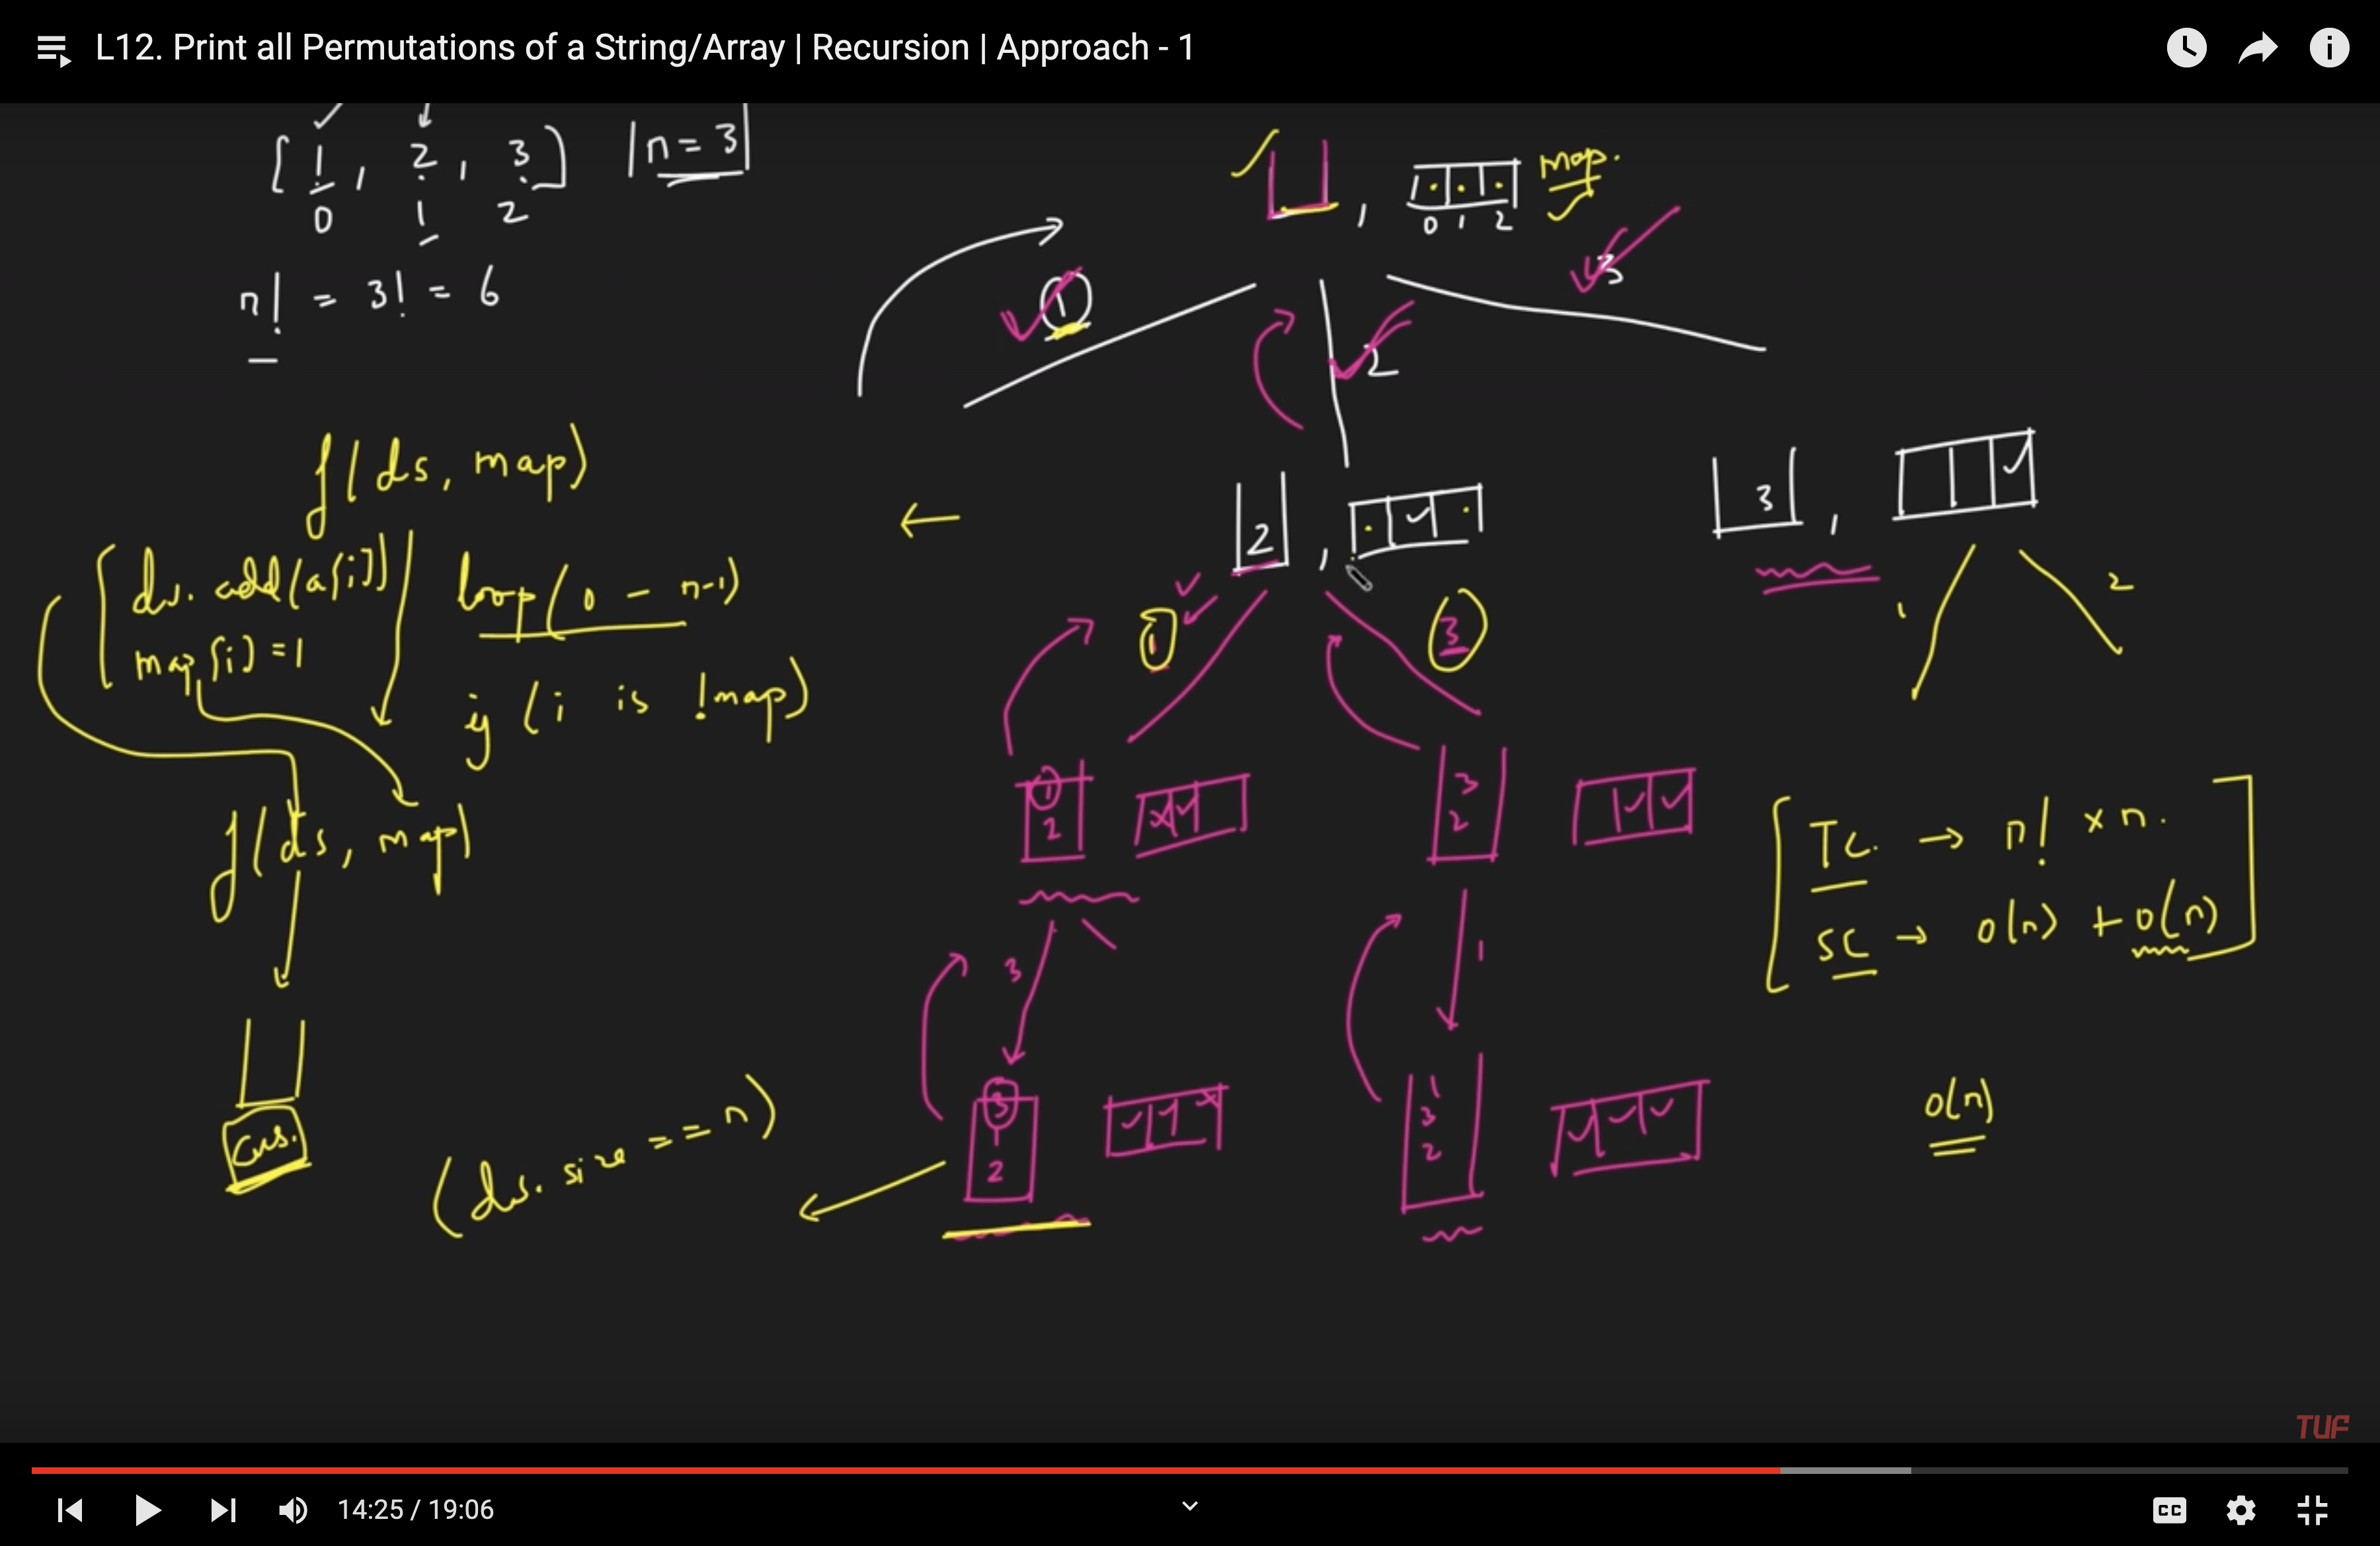 L12. Print all Permutations of a String/Array | Recursion | Approach - 1
[ 1, 2, 3 ] | n = 3 |
0 1 2
n! = 3! = 6
, map.
0 1 2
1 2 3
f(ds, map)
ds.add(a[i])
map[i] = 1
loop(0 - n-1)
if (i is !map)
f(ds, map)
(ds.size == n)
2 ,
3 ,
1 3
1 2
1
2
3
2
3 1
3
1
2
1
3
2
TC. → n! × n.
SC → O(n) + O(n)
O(n)
TUF
14:25 / 19:06
CC